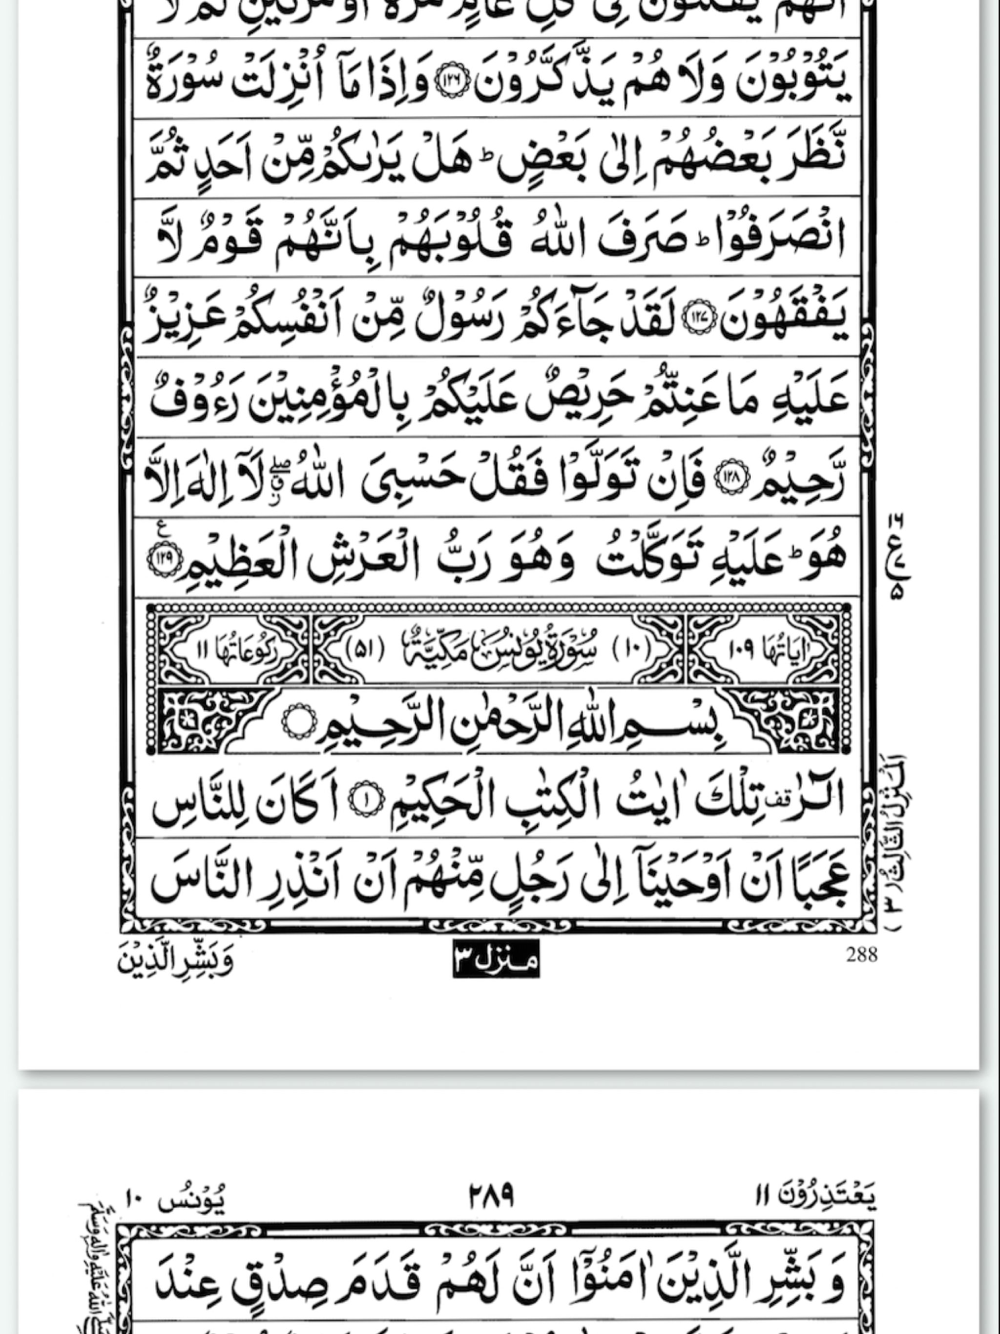 يَتُوْبُوْنَ وَلَا هُمْ يَذَّكَّرُوْنَ ﴿۱۲۶﴾ وَاِذَا مَآ اُنْزِلَتْ سُوْرَةٌ
نَّظَرَ بَعْضُهُمْ اِلٰى بَعْضٍ ؕ هَلْ يَرٰىكُمْ مِّنْ اَحَدٍ ثُمَّ
انْصَرَفُوْا ؕ صَرَفَ اللّٰهُ قُلُوْبَهُمْ بِاَنَّهُمْ قَوْمٌ لَّا
يَفْقَهُوْنَ ﴿۱۲۷﴾ لَقَدْ جَآءَكُمْ رَسُوْلٌ مِّنْ اَنْفُسِكُمْ عَزِيْزٌ
عَلَيْهِ مَا عَنِتُّمْ حَرِيْصٌ عَلَيْكُمْ بِالْمُؤْمِنِيْنَ رَءُوْفٌ
رَّحِيْمٌ ﴿۱۲۸﴾ فَاِنْ تَوَلَّوْا فَقُلْ حَسْبِيَ اللّٰهُ ۖ٘ لَآ اِلٰهَ اِلَّا
هُوَ ؕ عَلَيْهِ تَوَكَّلْتُ وَهُوَ رَبُّ الْعَرْشِ الْعَظِيْمِ ﴿۱۲۹﴾ ع
۱۶
ع
۷
۵
اٰيَاتُهَا ۱۰۹ (۱۰) سُوْرَةُ يُوْنُسَ مَكِّيَّةٌ (۵۱) رُكُوْعَاتُهَا ۱۱
بِسْمِ اللّٰهِ الرَّحْمٰنِ الرَّحِيْمِ
الٓرٰ قف تِلْكَ اٰيٰتُ الْكِتٰبِ الْحَكِيْمِ ﴿۱﴾ اَكَانَ لِلنَّاسِ
عَجَبًا اَنْ اَوْحَيْنَآ اِلٰى رَجُلٍ مِّنْهُمْ اَنْ اَنْذِرِ النَّاسَ
اَلْمَنْزِلُ الثَّالِثُ (۳)
وَبَشِّرِ الَّذِيْنَ
منزل ۳
288
يَعْتَذِرُوْنَ ۱۱
۲۸۹
يُوْنُسُ ۱۰
وَ بَشِّرِ الَّذِيْنَ اٰمَنُوْٓا اَنَّ لَهُمْ قَدَمَ صِدْقٍ عِنْدَ